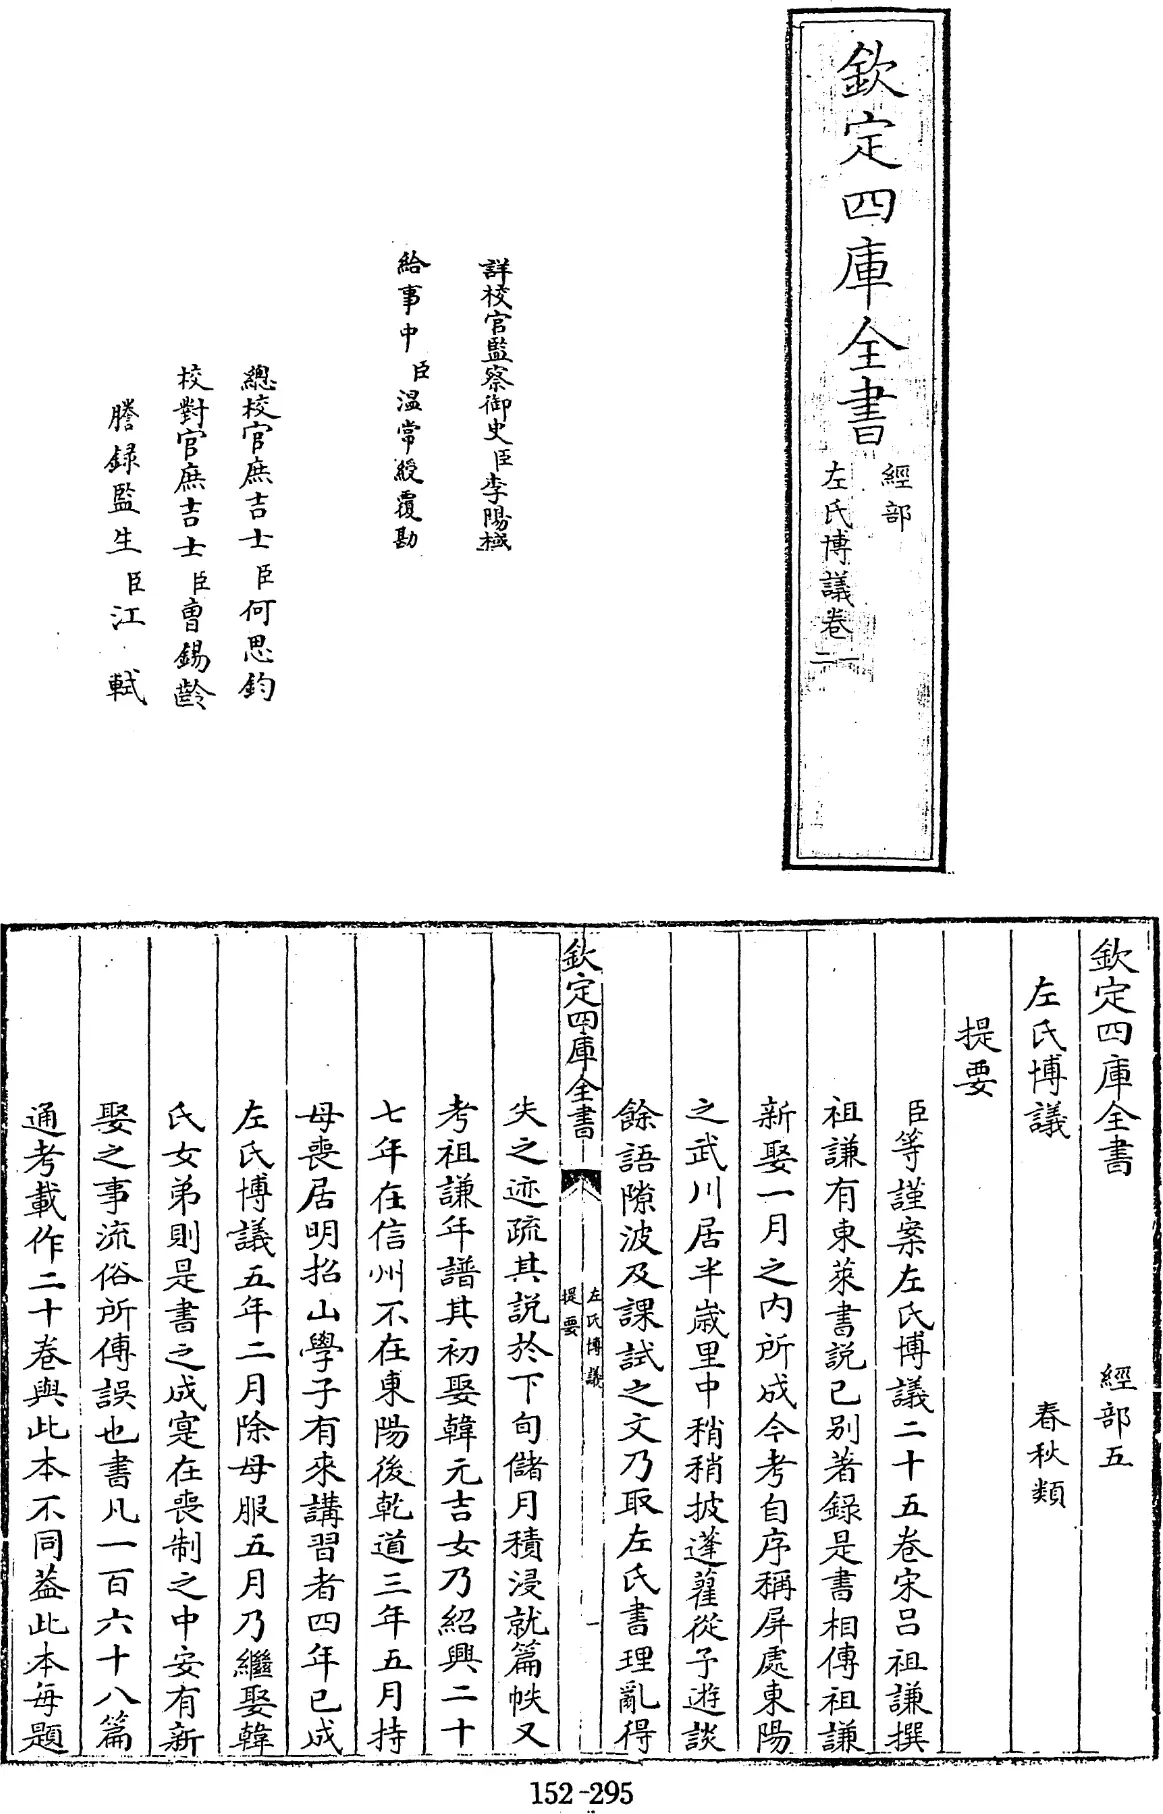 欽定四庫全書
經部
左氏博議卷一
二
詳校官監察御史臣李陽棫
給事中臣温常綬覆勘
總校官庶吉士臣何思鈞
校對官庶吉士臣曾錫齡
謄録監生臣江軾
欽定四庫全書 經部五
左氏博議 春秋類
提要
臣等謹案左氏博議二十五卷宋吕祖謙撰
祖謙有東萊書説已别著録是書相傳祖謙
新娶一月之内所成今考自序稱屏處東陽
之武川居半歳里中稍稍披蓬藋從予遊談
餘語隙波及課試之文乃取左氏書理亂得
欽定四庫全書
左氏博議
提要
一
失之迹疏其説於下旬儲月積浸就篇帙又
考祖謙年譜其初娶韓元吉女乃紹興二十
七年在信州不在東陽後乾道三年五月持
母喪居明招山學子有來講習者四年已成
左氏博議五年二月除母服五月乃繼娶韓
氏女弟則是書之成寔在喪制之中安有新
娶之事流俗所傳誤也書凡一百六十八篇
通考載作二十卷與此本不同葢此本每題
152-295